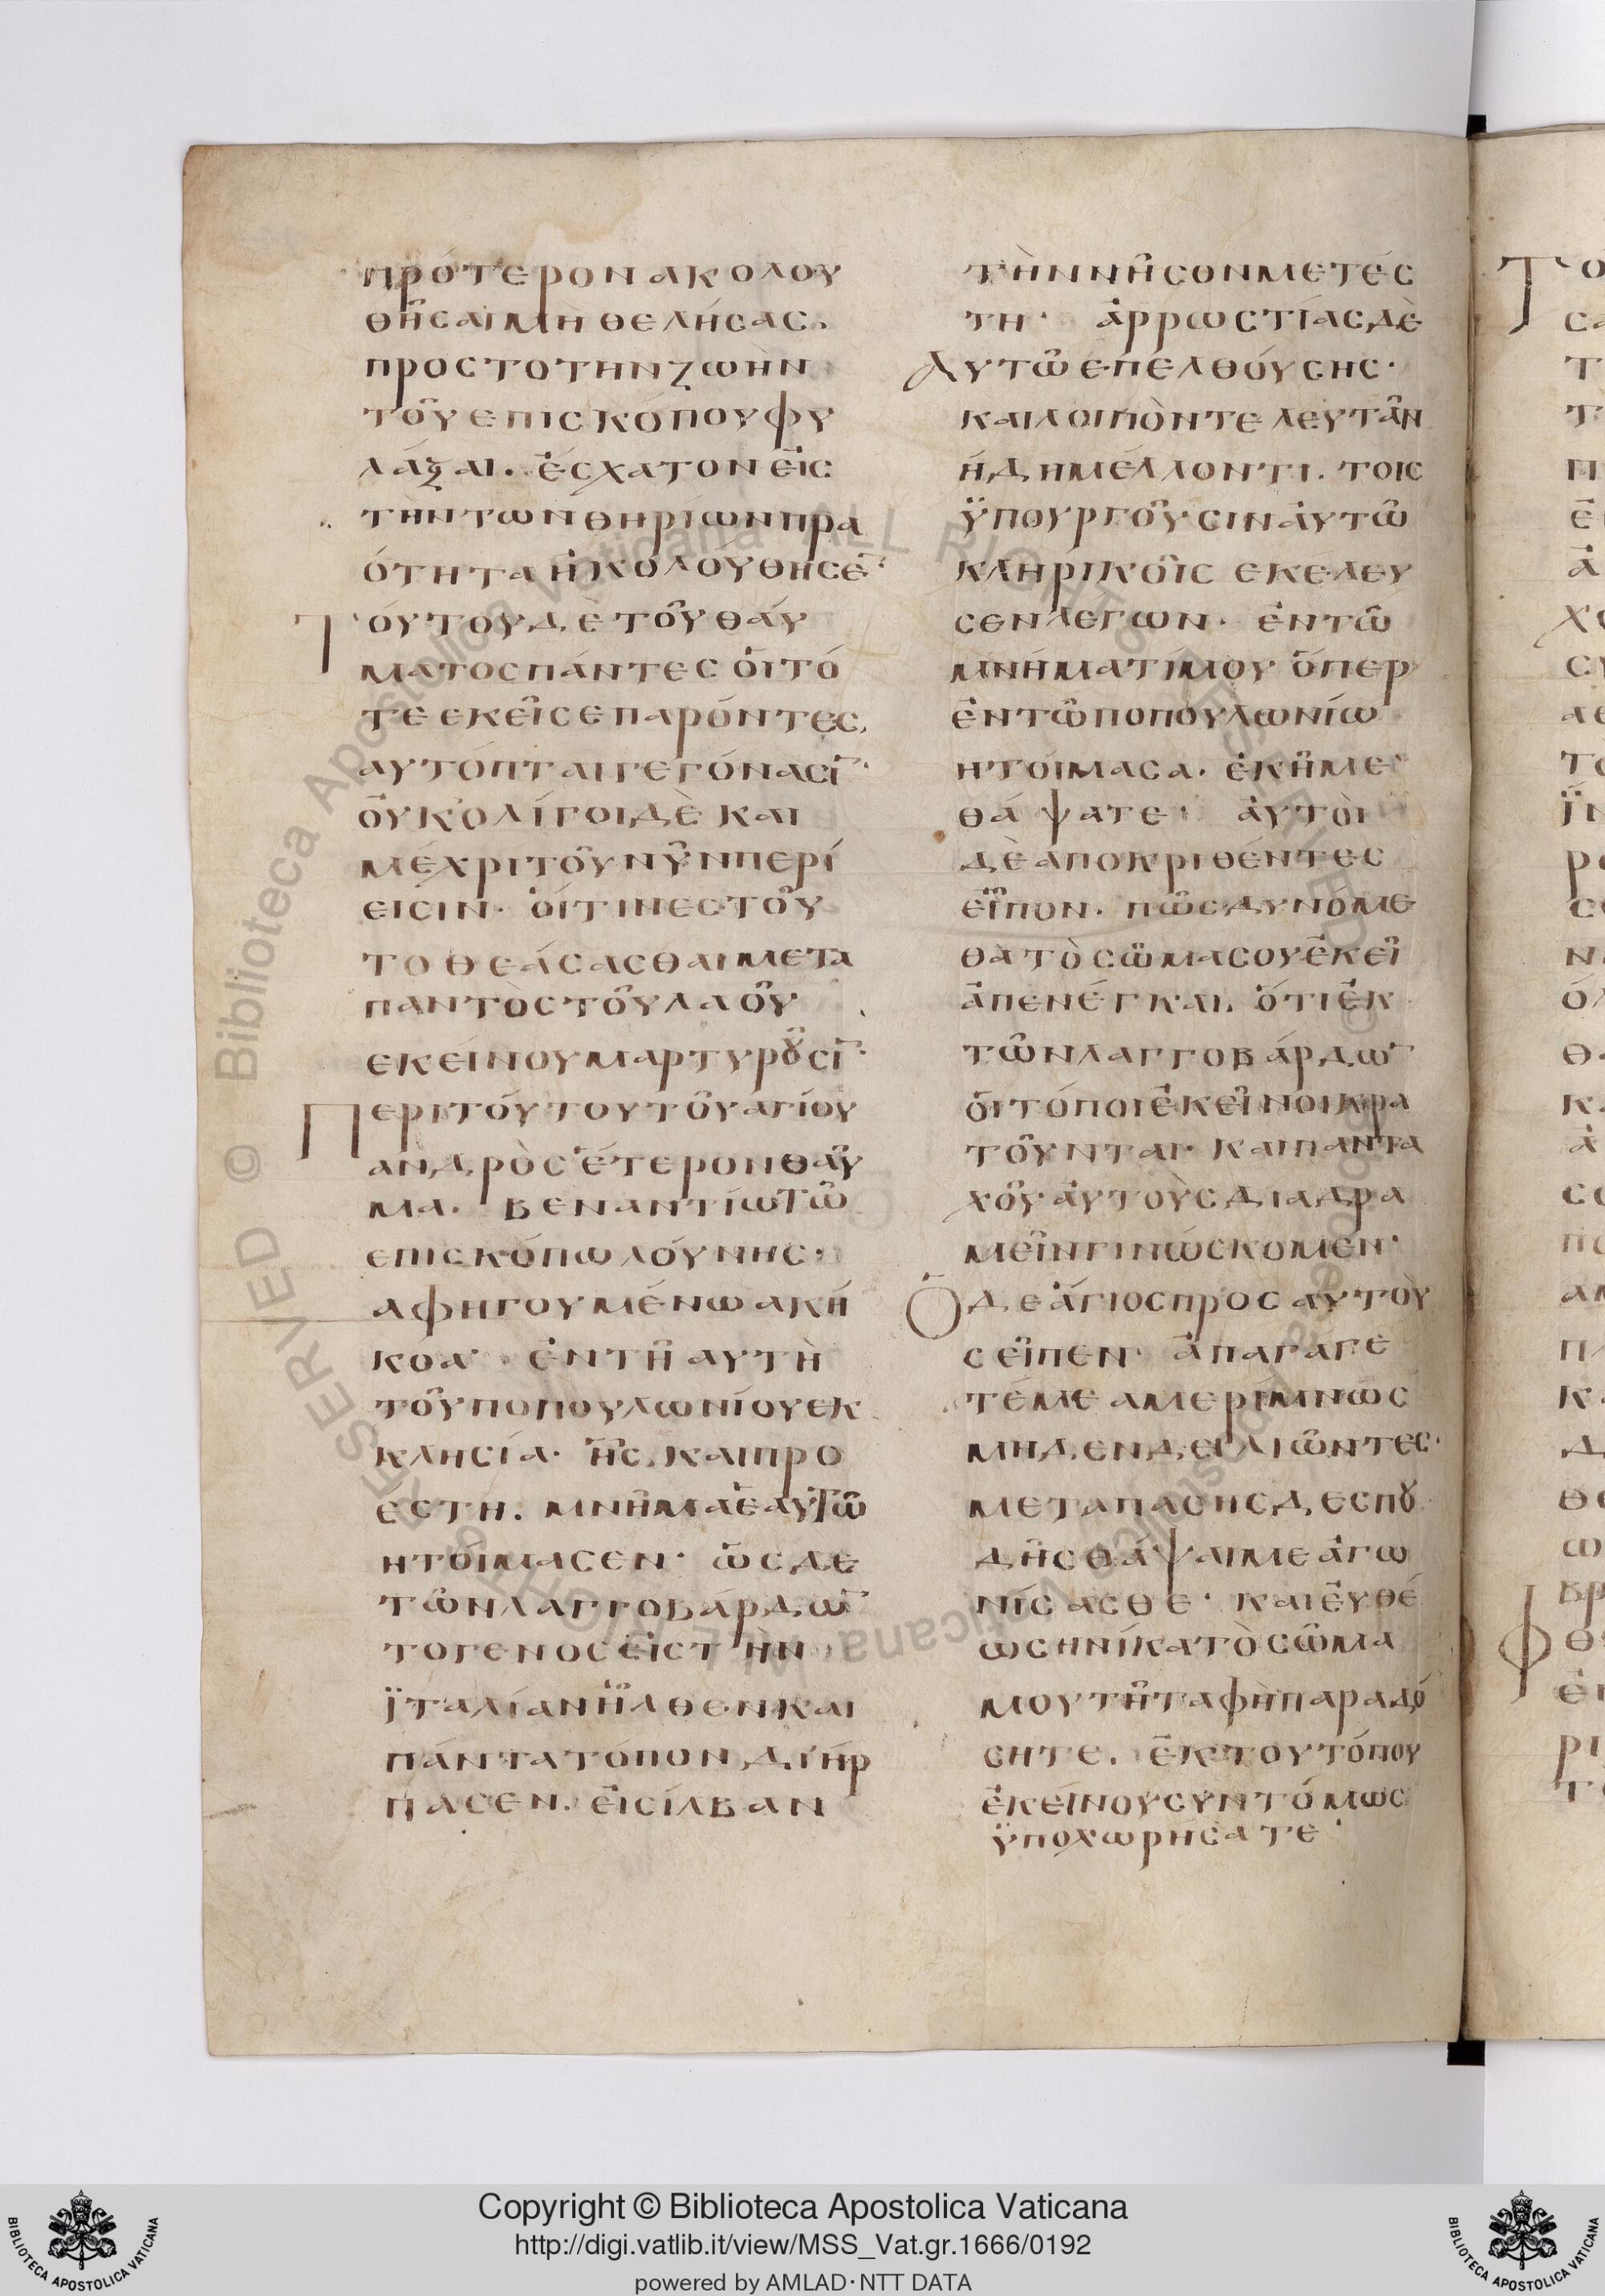 πρότερον ακολου
θῆσαι μὴ θελήσας,
προς το την ζωὴν
τοῦ επισκόπου φυ
λάξαι. ἔσχατον εἰς
τὴν των θηρίων πρα
ότητα ἠκολούθησε̅·
Τούτου δὲ τοῦ θαύ
ματος πάντες ὁι τό
τε εκεῖσε παρόντες,
αυτόπται γεγόνασι̅·
ὀυκ ολίγοι δὲ και
μέχρι του νῦν περί
εισιν· ὁίτινες τοῦ
το θεάσασθαι μετα
παντὸς τοῦ λαοῦ
εκείνου μαρτυροῦσι̅·
Περι τούτου τοῦ αγίου
ανδρὸς ἕτερον θαῦ
μα. βεναντίω τῶ
επισκόπω λούνης·
αφηγουμένω ακή
κοα· ἐν τῆ αυτὴ
τοῦ ποπουλωνίου εκ
κλησία· ἧς και προ
έστη. μνῆμα ἑαυτῶ
ητοίμασεν· ὡς δε
τῶν λαγγοβάρδω̅
το γενος ἐις τὴν
ϊταλίαν ῆλθεν και
πάντα τόπον διήρ
πασεν. ἐις ίλβαν
τὴν νῆσον μετέσ
τη· ἀρρωστίας δὲ
Αυτῶ επελθούσης·
και λοιπὸν τελευτᾶν
ήδη μέλλοντι. τοις
ϋπουργοῦσιν ἀυτῶ
κληρικοῖς εκελευ
σεν λεγων· ἐν τῶ
μνήματί μου ὅπερ
ἐν τῶ ποπουλωνίω
ητοίμασα. ἐκῆ με
θάψατε· ἀυτοὶ
δὲ αποκριθέντες
εῖπον. πῶς δυνόμε
θα τὸ σῶμα σου ἐκεῖ
ἀπενέγκαι, ὅτι ἐκ
τῶν λαγγοβάρδω̅
ὁι τόποι ἐκεῖνοι κρα
τοῦνται· και παντα
χοῦ ἀυτοὺς διαδρα
μεῖν γινώσκομεν·
Ὁ δε ἅγιος προς αυτοὺ
ς εῖπεν· ἀπαγάγε
τέ με αμερίμνως
μηδεν δειλιῶντες·
μετα πασης δε σπου
δῆς θάψαι με ἀγω
νίσασθε· και ἐυθέ
ως ηνίκα τὸ σῶμα
μου τῆ ταφὴ παραδό
σητε. ἐκ του τόπου
ἐκείνου συντόμως
ϋποχωρήσατε·
Copyright © Biblioteca Apostolica Vaticana
http://digi.vatlib.it/view/MSS_Vat.gr.1666/0192
powered by AMLAD·NTT DATA
BIBLIOTECA APOSTOLICA VATICANA
BIBLIOTECA APOSTOLICA VATICANA